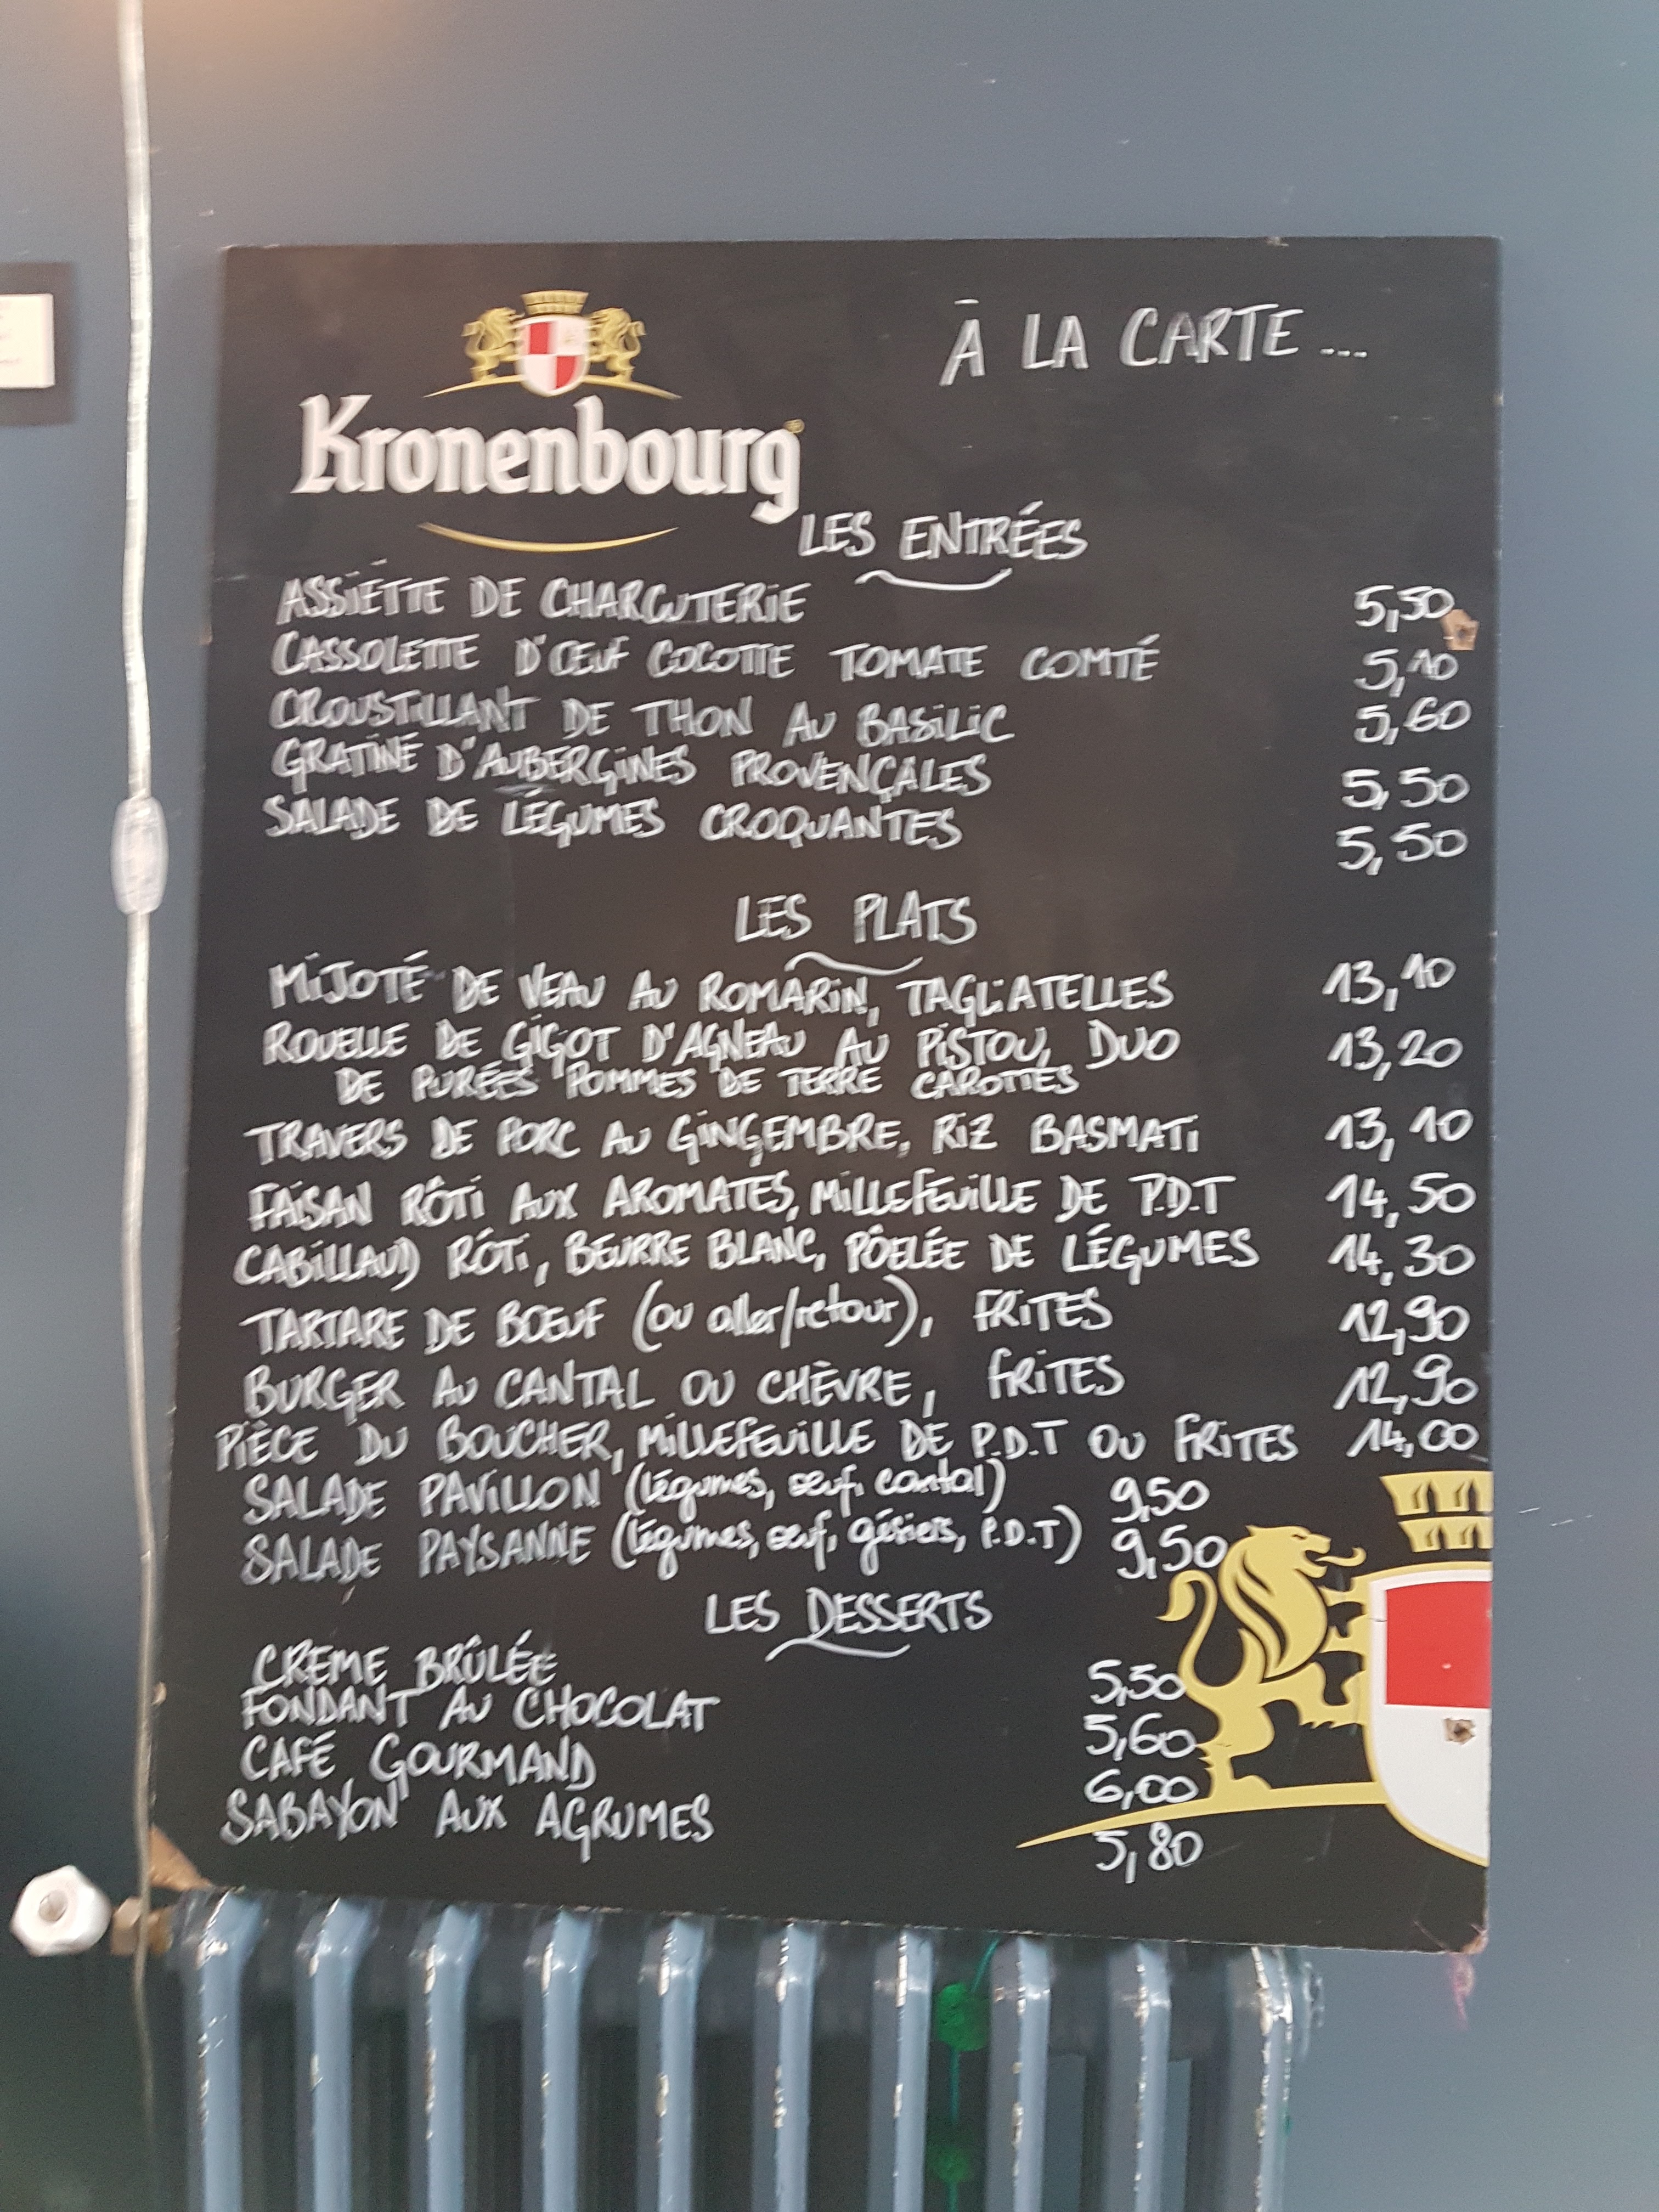 Kronenbourg
À LA CARTE...
LES ENTRÉES
ASSIETTE DE CHARCUTERIE 5,50
CASSOLETTE D'ŒUF COCOTTE TOMATE COMTÉ 5,10
CROUSTILLANT DE THON AU BASILIC 5,60
GRATINÉ D'AUBERGINES PROVENÇALES 5,50
SALADE DE LÉGUMES CROQUANTES 5,50
LES PLATS
MIJOTÉ DE VEAU AU ROMARIN, TAGLIATELLES 13,10
ROUELLE DE GIGOT D'AGNEAU AU PISTOU, DUO 13,20
DE PURÉES POMMES DE TERRE CAROTTES
TRAVERS DE PORC AU GINGEMBRE, RIZ BASMATI 13,10
FAISAN RÔTI AUX AROMATES, MILLEFEUILLE DE P.D.T 14,50
CABILLAUD RÔTI, BEURRE BLANC, PÔELÉE DE LÉGUMES 14,30
TARTARE DE BŒUF (ou aller/retour), FRITES 12,90
BURGER AU CANTAL OU CHÈVRE, FRITES 12,90
PIÈCE DU BOUCHER, MILLEFEUILLE DE P.D.T OU FRITES 14,00
SALADE PAVILLON (légumes, œuf, cantal) 9,50
SALADE PAYSANNE (légumes, œuf, gésiers, P.D.T) 9,50
LES DESSERTS
CREME BRÛLÉE 5,50
FONDANT AU CHOCOLAT 5,60
CAFÉ GOURMAND 6,00
SABAYON AUX AGRUMES 5,80